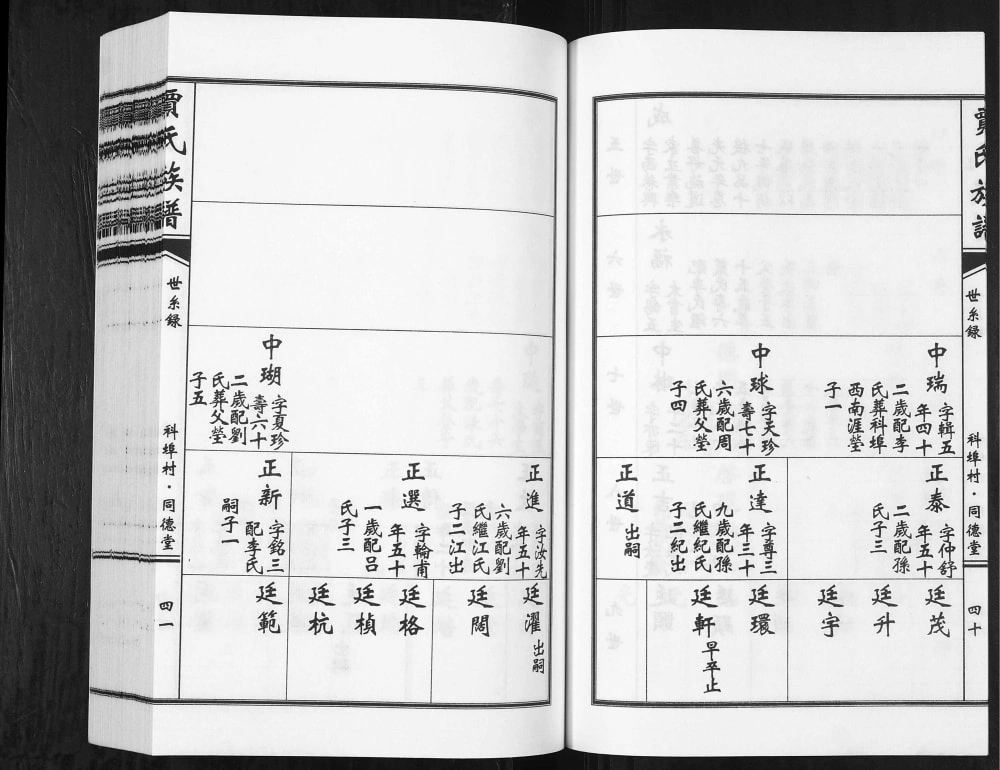 賈氏族譜
世系錄
科埠村·同德堂
四十
中瑞 字輯五
年四十
二歲配李
氏葬科埠
西南涯塋
子一
中球 字天珍
壽七十
六歲配周
氏葬父塋
子四
正泰 字仲舒
年五十
二歲配孫
氏子三
正達 字尊三
年三十
九歲配孫
氏繼紀氏
子二紀出
正道 出嗣
廷茂
廷升
廷宇
廷環
廷軒 早卒止
中瑚 字夏珍
壽六十
二歲配劉
氏葬父塋
子五
正進 字汝先
年五十
六歲配劉
氏繼江氏
子二江出
正選 字輪甫
年五十
一歲配呂
氏子三
正新 字銘三
配李氏
嗣子一
廷濯 出嗣
廷闊
廷格
廷楨
廷杭
廷範
賈氏族譜
世系錄
科埠村·同德堂
四一